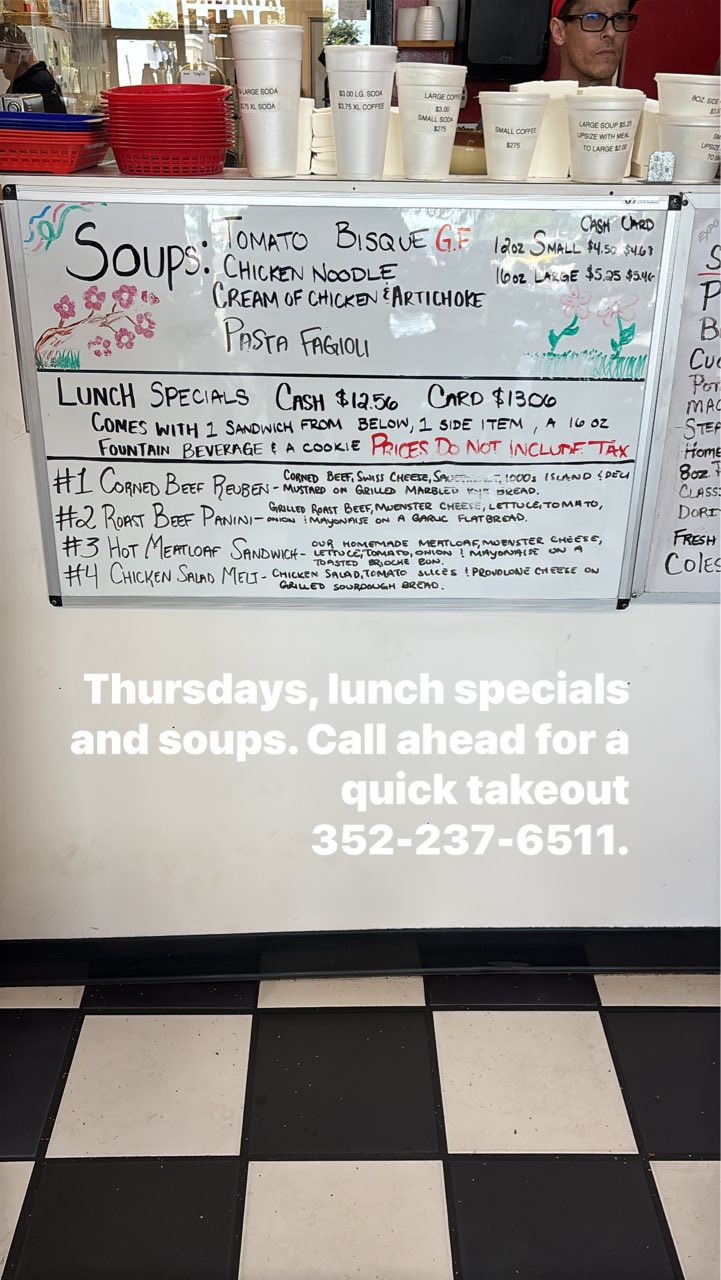 LARGE SODA
$3.75 XL SODA
$3.00 LG. SODA
$3.75 XL COFFEE
LARGE COFFEE
$3.00
SMALL SODA
$275
SMALL COFFEE
$275
LARGE SOUP $5.25
UPSIZE WITH MEAL
TO LARGE $2.00
8OZ. SIDE
UPSIZE
CASH CARD
SOUPS: TOMATO BISQUE G.F 12oz SMALL $4.50 $4.63
CHICKEN NOODLE 16oz LARGE $5.25 $5.46
CREAM OF CHICKEN & ARTICHOKE
PASTA FAGIOLI
LUNCH SPECIALS CASH $12.56 CARD $13.06
COMES WITH 1 SANDWICH FROM BELOW, 1 SIDE ITEM, A 16 OZ
FOUNTAIN BEVERAGE & A COOKIE PRICES DO NOT INCLUDE TAX
#1 CORNED BEEF REUBEN - CORNED BEEF, SWISS CHEESE, 1000s ISLAND & DELI
MUSTARD ON GRILLED MARBLED RYE BREAD.
#2 ROAST BEEF PANINI - GRILLED ROAST BEEF, MUENSTER CHEESE, LETTUCE, TOMATO,
ONION & MAYONAISE ON A GARLIC FLATBREAD.
#3 HOT MEATLOAF SANDWICH - OUR HOMEMADE MEATLOAF, MUENSTER CHEESE,
LETTUCE, TOMATO, ONION & MAYONAISE ON A
TOASTED BRIOCHE BUN.
#4 CHICKEN SALAD MELT - CHICKEN SALAD, TOMATO SLICES & PROVOLONE CHEESE ON
GRILLED SOURDOUGH BREAD.
HOME
8oz
CLASS
FRESH
COLES
Thursdays, lunch specials
and soups. Call ahead for a
quick takeout
352-237-6511.